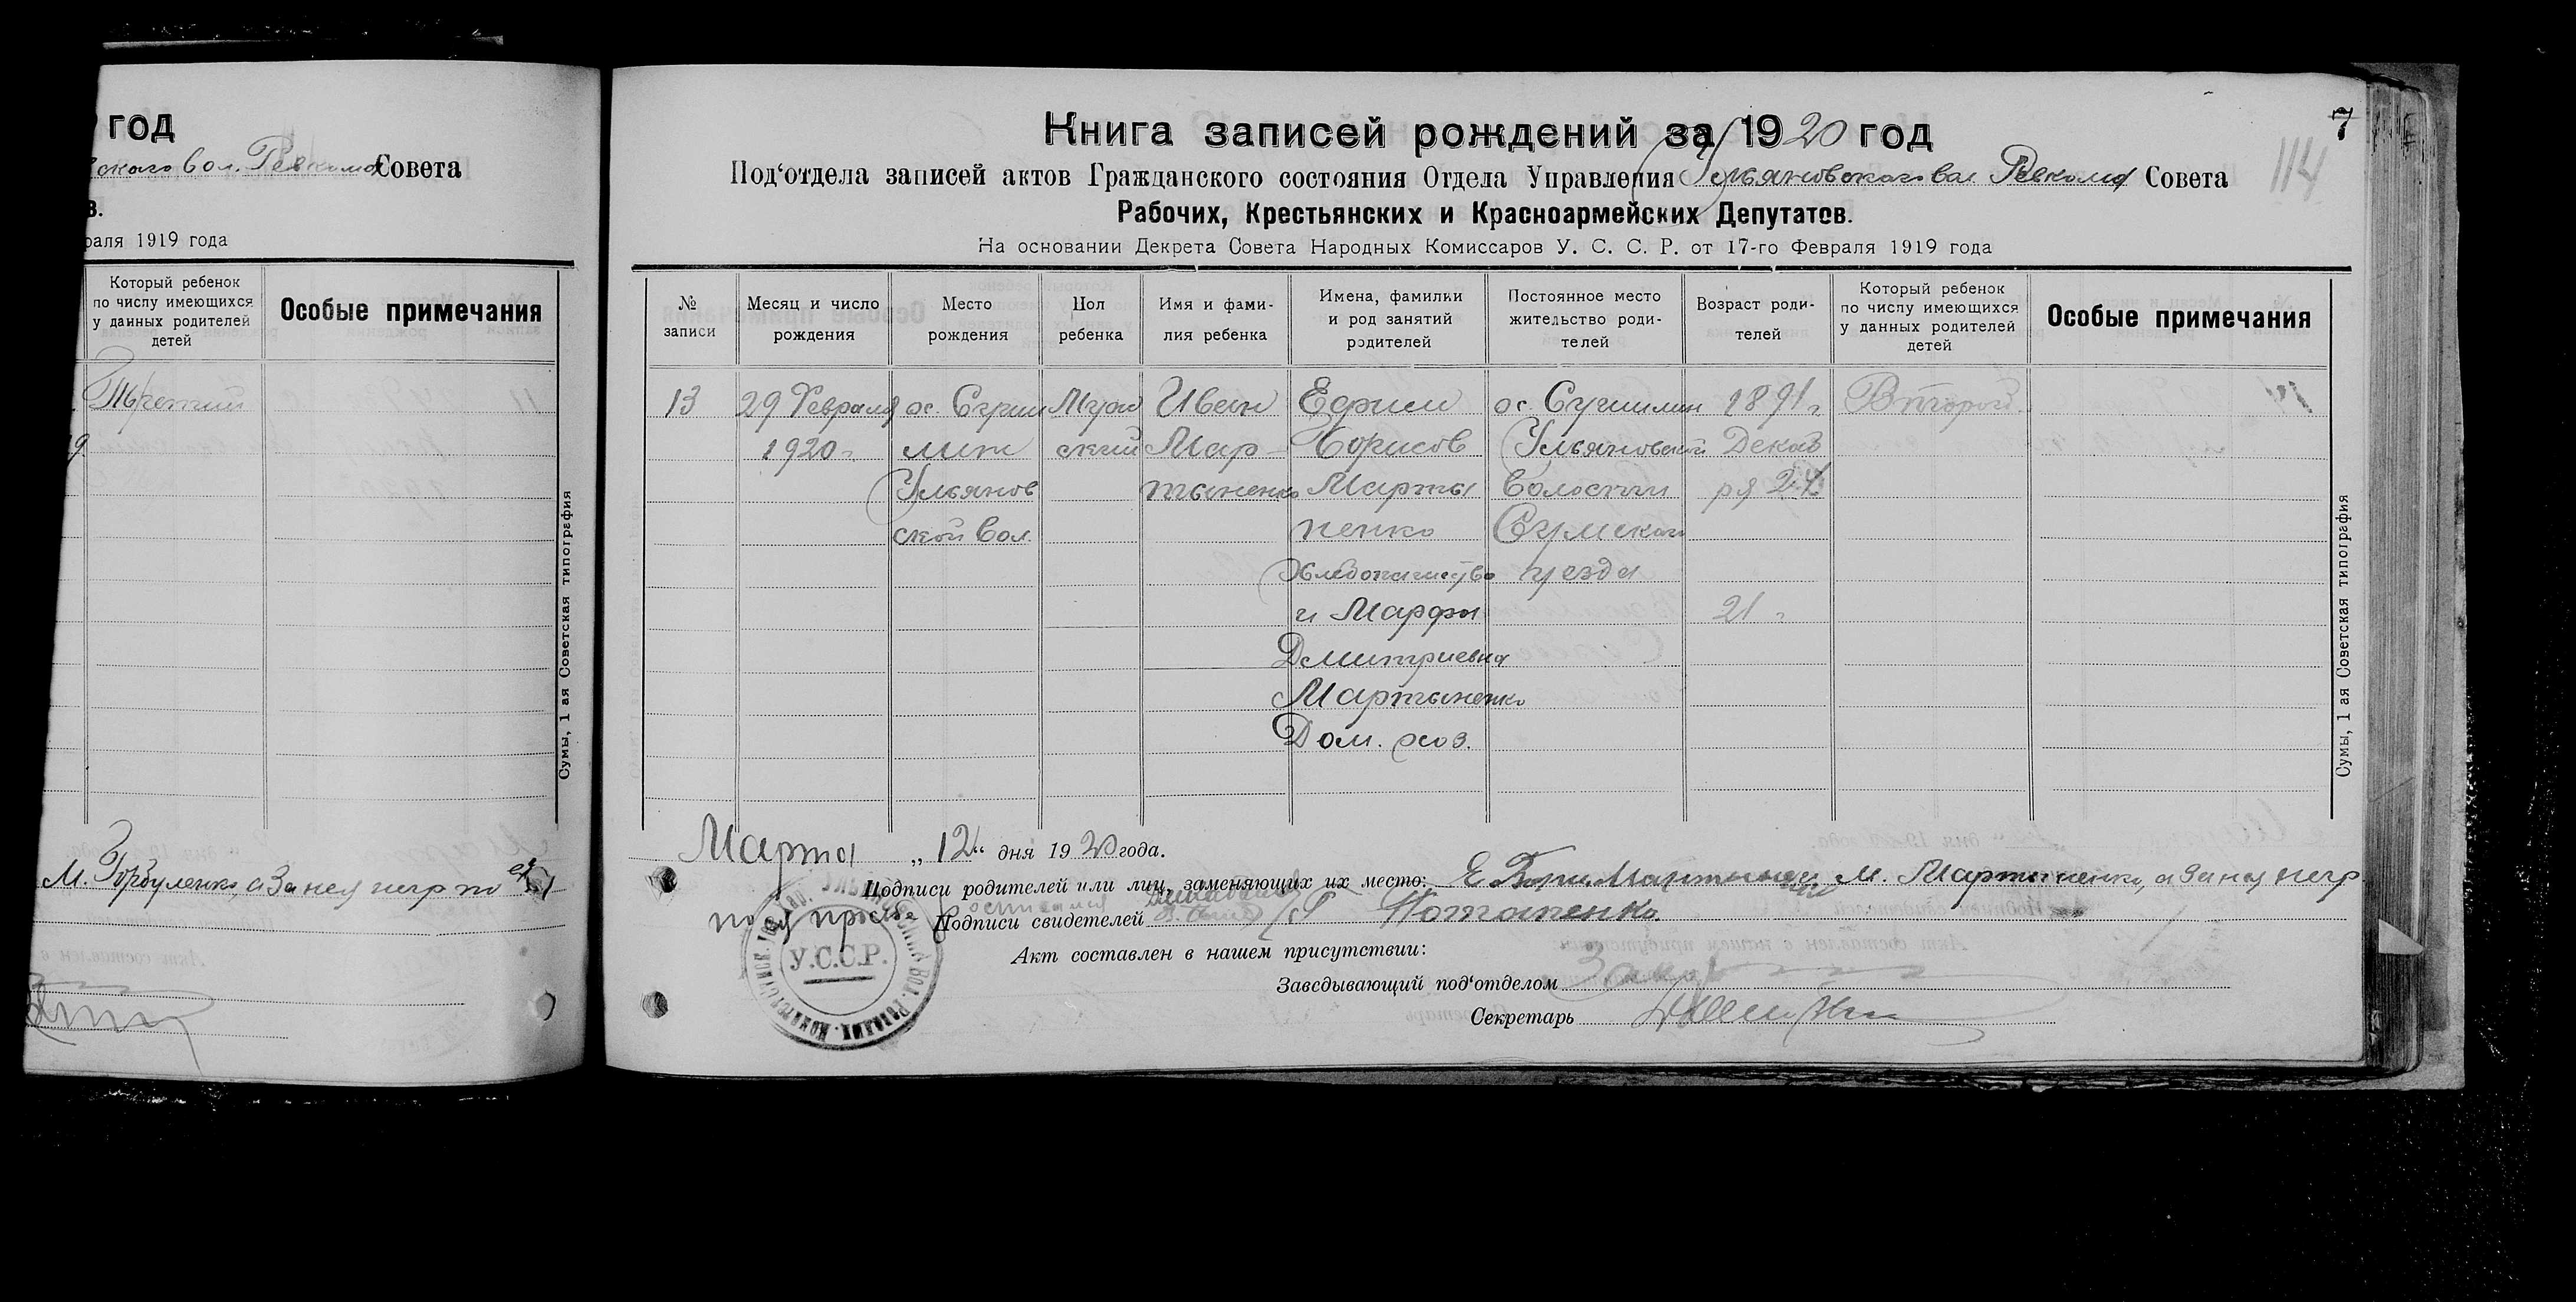 год
ского вол. Ревкома Совета
в.
раля 1919 года
Который ребенок
по числу имеющихся
у данных родителей
детей
Особые примечания
Третий
9
Сумы, 1 ая Советская типография
М. Горбуленко, а за нея негр по ея
Книга записей рождений за 1920 год
7
114
Под‘отдела записей актов Гражданского состояния Отдела Управления Ульяновского вол. Ревкома Совета
Рабочих, Крестьянских и Красноармейских Депутатов.
На основании Декрета Совета Народных Комиссаров У. С. С. Р. от 17-го Февраля 1919 года
№
записи
Месяц и число
рождения
Место
рождения
Пол
ребенка
Имя и фами-
лия ребенка
Имена, фамилки
и род занятий
родителей
Постоянное место
жительство роди-
телей
Возраст роди-
телей
Который ребенок
по числу имеющихся
у данных родителей
детей
Особые примечания
13
29 Февраля
1920 г.
Ульянов
ской вол.
Муж
ский
Иван
Мар-
тыненко
Ефрим
Борисов
Марты
ненко
Хлебопашество
и Марфы
Дмитриевна
Мартыненко
Дом. хоз.
Ульяновской
Волости
Сумского
уезда
1891 г.
Декаб
ря 24
21 г.
Второй
Сумы, 1 ая Советская типография
Марта „12“ дня 1920 года.
Подписи родителей или лиц, заменяющих их место: М. Мартыненко, а за нея негр
по ея просьбе
Подписи свидетелей Потапенко
У.С.С.Р.
Акт составлен в нашем присутствии:
Заведывающий под‘отделом
Секретарь